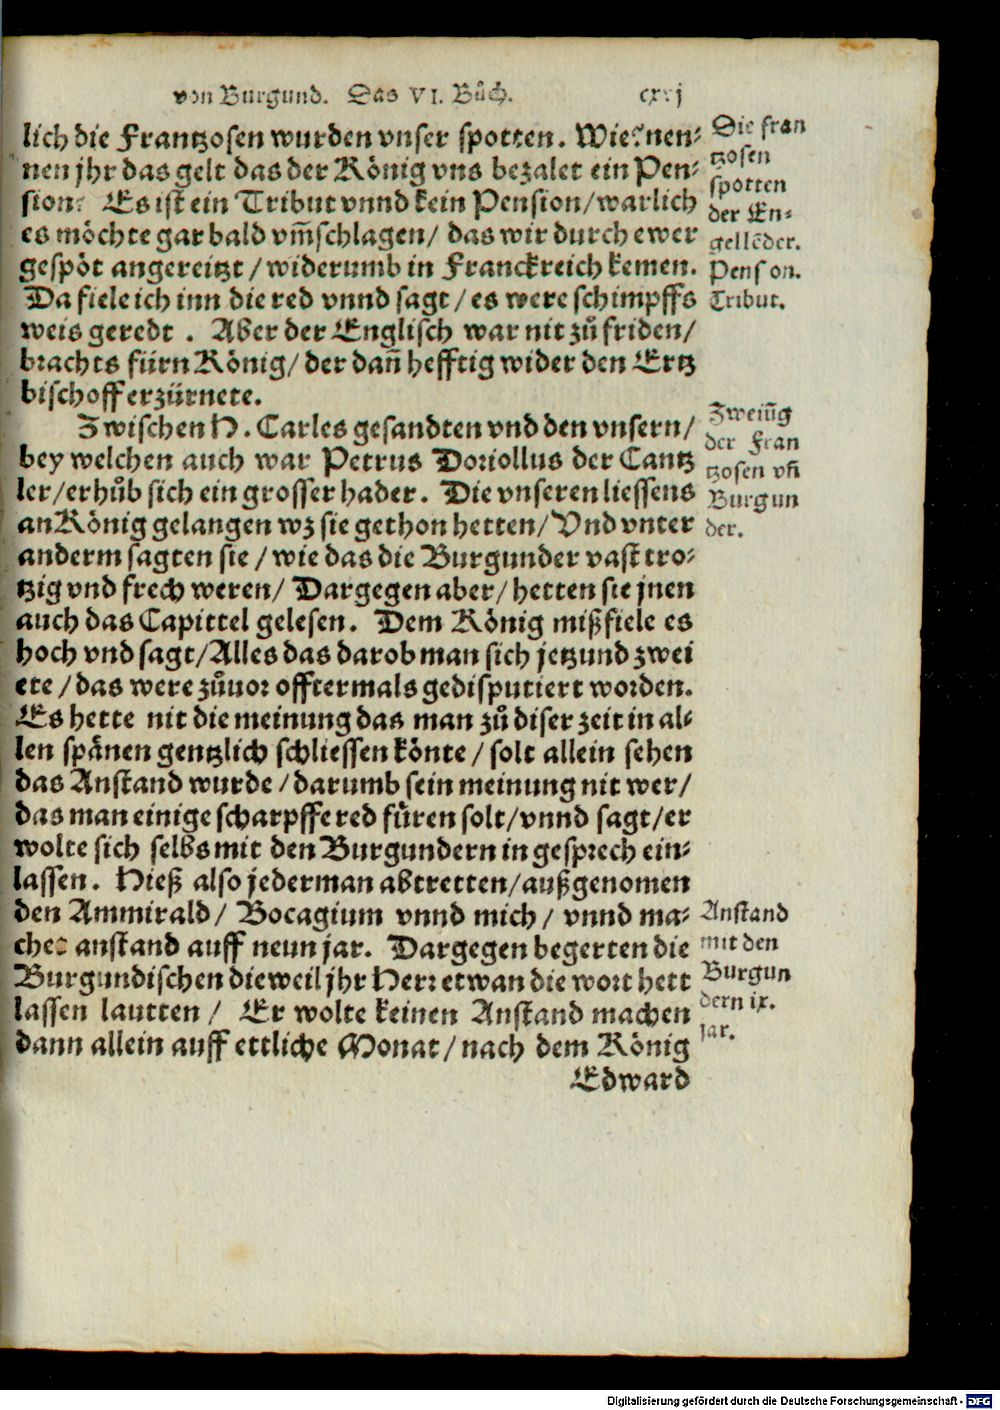 von Burgund. Das VI. Bůch. cxxj
lich die Frantzosen wurden vnser spotten. Wie? nen-
nen jhr das gelt das der König vns bezalet ein Pen-
sion? Es ist ein Tribut vnnd kein Pension/warlich
es möchte gar bald vm̄schlagen/ das wir durch ewer
gespöt angereitzt/widerumb in Franckreich kemen.
Da fiele ich inn die red vnnd sagt/es were schimpffs
weis geredt. Aber der Englisch war nit zů friden/
brachts fürn König/ der dañ hefftig wider den Ertz
bischoff erzürnete.
Die fran
tzosen
spotten
der En-
gellēder.
Pension.
Tribut.
Zwischen H. Carles gesandten vnd den vnsern/
bey welchen auch war Petrus Doriollus der Cantz
ler/erhůb sich ein grosser hader. Die vnseren liessens
an König gelangen wz sie gethon hetten/Vnd vnter
anderm sagten sie/wie das die Burgunder vast tro-
tzig vnd frech weren/ Dargegen aber/hetten sie jnen
auch das Capittel gelesen. Dem König mißfiele es
hoch vnd sagt/Alles das darob man sich jetzund zwei
ete/das were zůuor offtermals gedisputiert worden.
Es hette nit die meinung das man zů diser zeit in al-
len spånen gentzlich schliessen könte/solt allein sehen
das Anstand wurde/darumb sein meinung nit wer/
das man einige scharpffe red fůren solt/vnnd sagt/er
wolte sich selbs mit den Burgundern in gesprech ein-
lassen. Hieß also jederman abtretten/außgenomen
den Ammirald/ Bocagium vnnd mich/ vnnd ma-
chet anstand auff neun jar. Dargegen begerten die
Burgundischen dieweil jhr Herr etwan die wort hett
lassen lautten/ Er wolte keinen Anstand machen
dann allein auff ettliche Monat/nach dem König
Edward
Zweiūg
der Fran
tzosen vñ
Burgun
der.
Anstand
mit den
Burgun
dern ix.
jar.
Digitalisierung gefördert durch die Deutsche Forschungsgemeinschaft - DFG